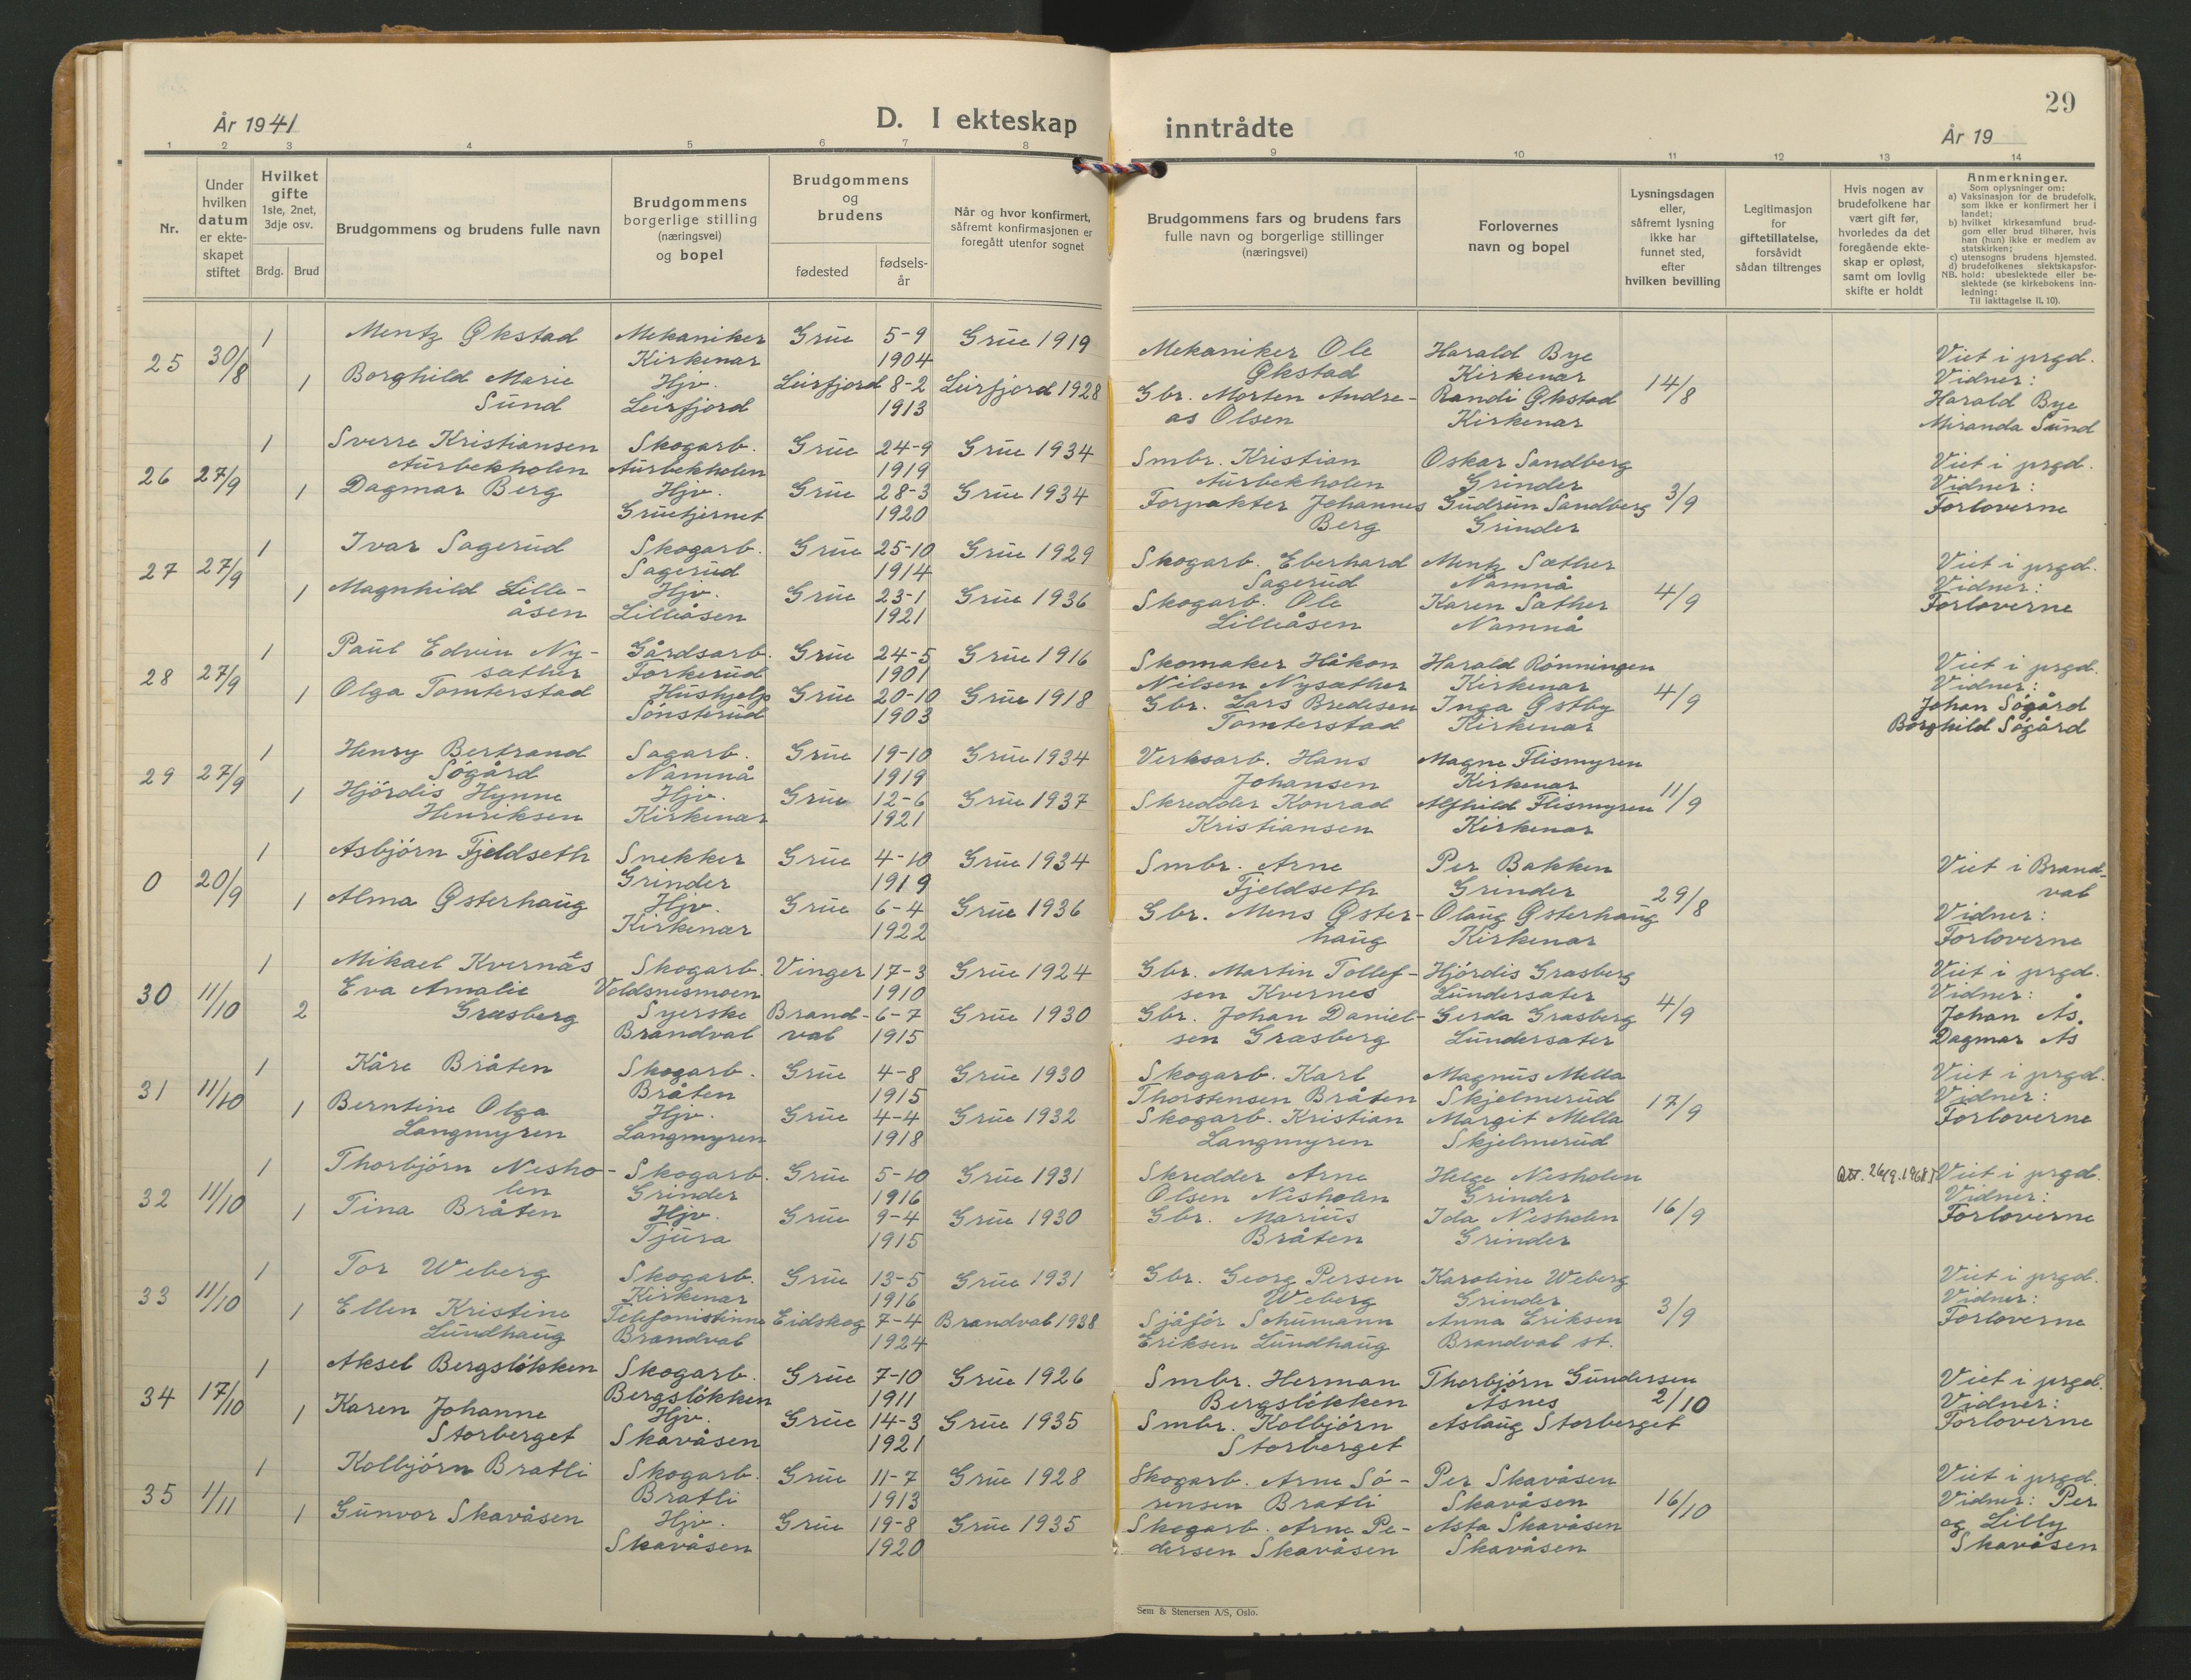 År 1941
D. I ekteskap
inntrådte
29
År 19
1 2 3 4 5 6 7 8 9 10 11 12 13 14
Nr.
Under hvilken datum er ekteskapet stiftet
Hvilket gifte 1ste, 2net, 3dje osv.
Brdg. Brud
Brudgommens og brudens fulle navn
Brudgommens borgerlige stilling (næringsvei) og bopel
Brudgommens og brudens
fødested
fødsels-år
Når og hvor konfirmert, såfremt konfirmasjonen er foregått utenfor sognet
Brudgommens fars og brudens fars fulle navn og borgerlige stillinger (næringsvei)
Forlovernes navn og bopel
Lysningsdagen eller, såfremt lysning ikke har funnet sted, efter hvilken bevilling
Legitimasjon for giftetillatelse, forsåvidt sådan tiltrenges
Hvis nogen av brudefolkene har vært gift før, hvorledes da det foregående ekteskap er opløst, samt om lovlig skifte er holdt
Anmerkninger.
Som oplysninger om:
a) Vaksinasjon for de brudefolk, som ikke er konfirmert her i landet;
b) hvilket kirkesamfund brudgom eller brud tilhører, hvis han (hun) ikke er medlem av statskirken;
c) utensogns brudens hjemsted.
d) brudefolkenes slektskapsforhold: ubeslektede eller beslektede (se kirkebokens innledning:
NB. Til iakttagelse II. 10).
25 30/8 1 Mentz Økstad Mekaniker Kirkenær Grue 5-9 1904 Grue 1919 Mekaniker Ole Økstad Harald Bye Kirkenær 14/8 Viet i prgd. Vidner:
1 Borghild Marie Sund Hjv. Leirfjord Leirfjord 8-2 1913 Leirfjord 1928 Gbr. Morten Andreas Olsen Randi Økstad Kirkenær Harald Bye Miranda Sund
26 27/9 1 Sverre Kristiansen Aurbekholen Skogarb. Aurbekholen Grue 24-9 1919 Grue 1934 Smbr. Kristian Aurbekholen Oskar Sandberg Grinder 3/9 Viet i prgd. Vidner:
1 Dagmar Berg Hjv. Gruetjernet Grue 28-3 1920 Grue 1934 Forpakter Johannes Berg Gudrun Sandberg Grinder Forloverne
27 27/9 1 Ivar Sagerud Skogarb. Sagerud Grue 25-10 1914 Grue 1929 Skogarb. Eberhard Sagerud Mentz Sæther Namnå 4/9 Viet i prgd. Vidner:
1 Magnhild Lilleåsen Hjv. Lilleåsen Grue 23-1 1921 Grue 1936 Skogarb. Ole Lilleåsen Karen Sæther Namnå Forloverne
28 27/9 1 Paul Edvin Nysæther Gårdsarb. Forkerud Grue 24-5 1901 Grue 1916 Skomaker Håkon Nilsen Nysæther Harald Rønningen Kirkenær 4/9 Viet i prgd. Vidner:
1 Olga Tomterstad Hushjelp Sønsterud Grue 20-10 1903 Grue 1918 Gbr. Lars Bredesen Tomterstad Inga Østby Kirkenær Johan Søgård Borghild Søgård
29 27/9 1 Henry Bertrand Søgård Sagarb. Namnå Grue 19-10 1919 Grue 1934 Verksarb. Hans Johansen Magne Flismyren Kirkenær 11/9
1 Hjørdis Hynne Henriksen Hjv. Kirkenær Grue 12-6 1921 Grue 1937 Skredder Konrad Kristiansen Alfhild Flismyren Kirkenær
0 20/9 1 Asbjørn Fjeldseth Snekker Grinder Grue 4-10 1919 Grue 1934 Smbr. Arne Fjeldseth Per Bakken Grinder 29/8 Viet i Brandval
1 Alma Østerhaug Hjv. Kirkenær Grue 6-4 1922 Grue 1936 Gbr. Mens Østerhaug Olaug Østerhaug Kirkenær Vidner: Forloverne
30 11/10 1 Mikael Kvernæs Skogarb. Voldsnesmoen Vinger 17-3 1910 Grue 1924 Gbr. Martin Tollefsen Kvernes Hjørdis Grasberg Lundersæter 4/9 Viet i prgd. Vidner:
2 Eva Amalie Græsberg Syerske Brandval Brandval 6-7 1915 Grue 1930 Gbr. Johan Danielsen Græsberg Gerda Grasberg Lundersæter Johan Ås. Dagmar Ås
31 11/10 1 Kåre Bråten Skogarb. Bråten Grue 4-8 1915 Grue 1930 Skogarb. Karl Thorstensen Bråten Magnus Mella Skjelmerud 17/9 Viet i prgd. Vidner:
1 Berntine Olga Langmyren Hjv. Langmyren Grue 4-4 1918 Grue 1932 Skogarb. Kristian Langmyren Margit Mella Skjelmerud Forloverne
32 11/10 1 Thorbjørn Nesholen Skogarb. Grinder Grue 5-10 1916 Grue 1931 Skredder Arne Olsen Nesholen Helge Nesholen Grinder 16/9 26/9.1968 Viet i prgd. Vidner:
1 Tina Bråten Hjv. Tjura Grue 9-4 1915 Grue 1930 Gbr. Marius Bråten Ida Nesholen Grinder Forloverne
33 11/10 1 Tor Weberg Skogarb. Kirkenær Grue 13-5 1916 Grue 1931 Gbr. Georg Persen Weberg Karoline Weberg Grinder 3/9 Viet i prgd. Vidner:
1 Ellen Kristine Lundhaug Telefonistinne Brandval Eidskog 7-4 1924 Brandval 1938 Sjåfør Schumann Eriksen Lundhaug Anna Eriksen Brandval st. Forloverne
34 17/10 1 Aksel Bergsløkken Skogarb. Bergsløkken Grue 7-10 1911 Grue 1926 Smbr. Herman Bergsløkken Thorbjørn Gundersen Åsnes 2/10 Viet i prgd. Vidner:
1 Karen Johanne Storberget Hjv. Skavåsen Grue 14-3 1921 Grue 1935 Smbr. Kolbjørn Storberget Aslaug Storberget Forloverne
35 1/11 1 Kolbjørn Bratli Skogarb. Bratli Grue 11-7 1913 Grue 1928 Skogarb. Arne Sørensen Bratli Per Skavåsen Skavåsen 16/10 Viet i prgd. Vidner: Per
1 Gunvor Skavåsen Hjv. Skavåsen Grue 19-8 1920 Grue 1935 Skogarb. Arne Pedersen Skavåsen Asta Skavåsen Skavåsen og Lilly Skavåsen
Sem & Stenersen A/S, Oslo.